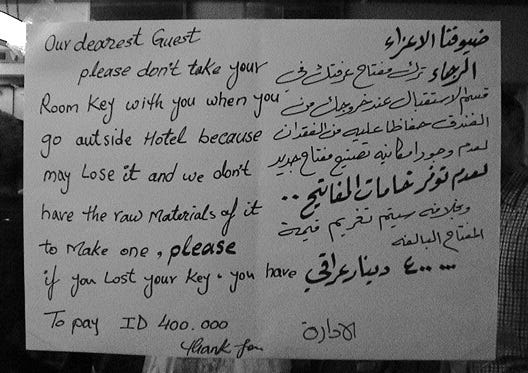 Our dearest Guest
please don't take your
Room Key with you when you
go outside Hotel because
may Lose it and we don't
have the raw Materials of it
to Make one, please
if you Lost your Key. you have
To pay ID 400.000
Thank you
ضيوفنا الاعزاء
الرجاء ترك مفتاح غرفتك في
قسم الاستقبال عند خروجك من
الفندق حفاظا عليه من الفقدان
لعدم وجود امكانية تصنيع مفتاح جديد
لعدم توفر خامات المفاتيح ..
وبخلافه سيتم تغريم قيمة
المفتاح البالغه
٤٠٠٠٠٠ دينار عراقي
الادارة